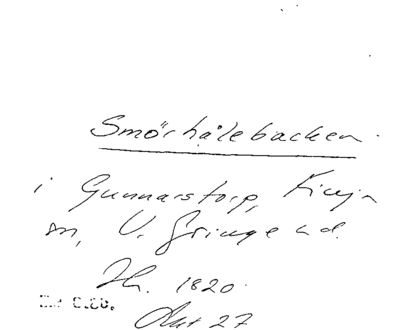 Smörhålebacken
i Gunnarstorp, Finja
sn, V. Göinge hd.
1820
27